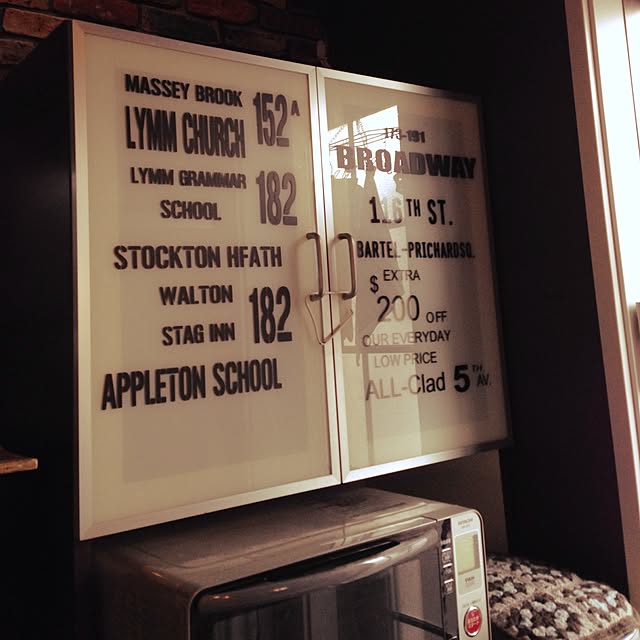 MASSEY BROOK
LYMM CHURCH
152A
LYMM GRAMMAR
SCHOOL
182
STOCKTON HEATH
WALTON
STAG INN
182
APPLETON SCHOOL
173-191
BROADWAY
116TH ST.
BARTEL-PRICHARDSQ.
EXTRA
$200 OFF
OUR EVERYDAY
LOW PRICE
ALL-Clad 5TH AV.
HITACHI